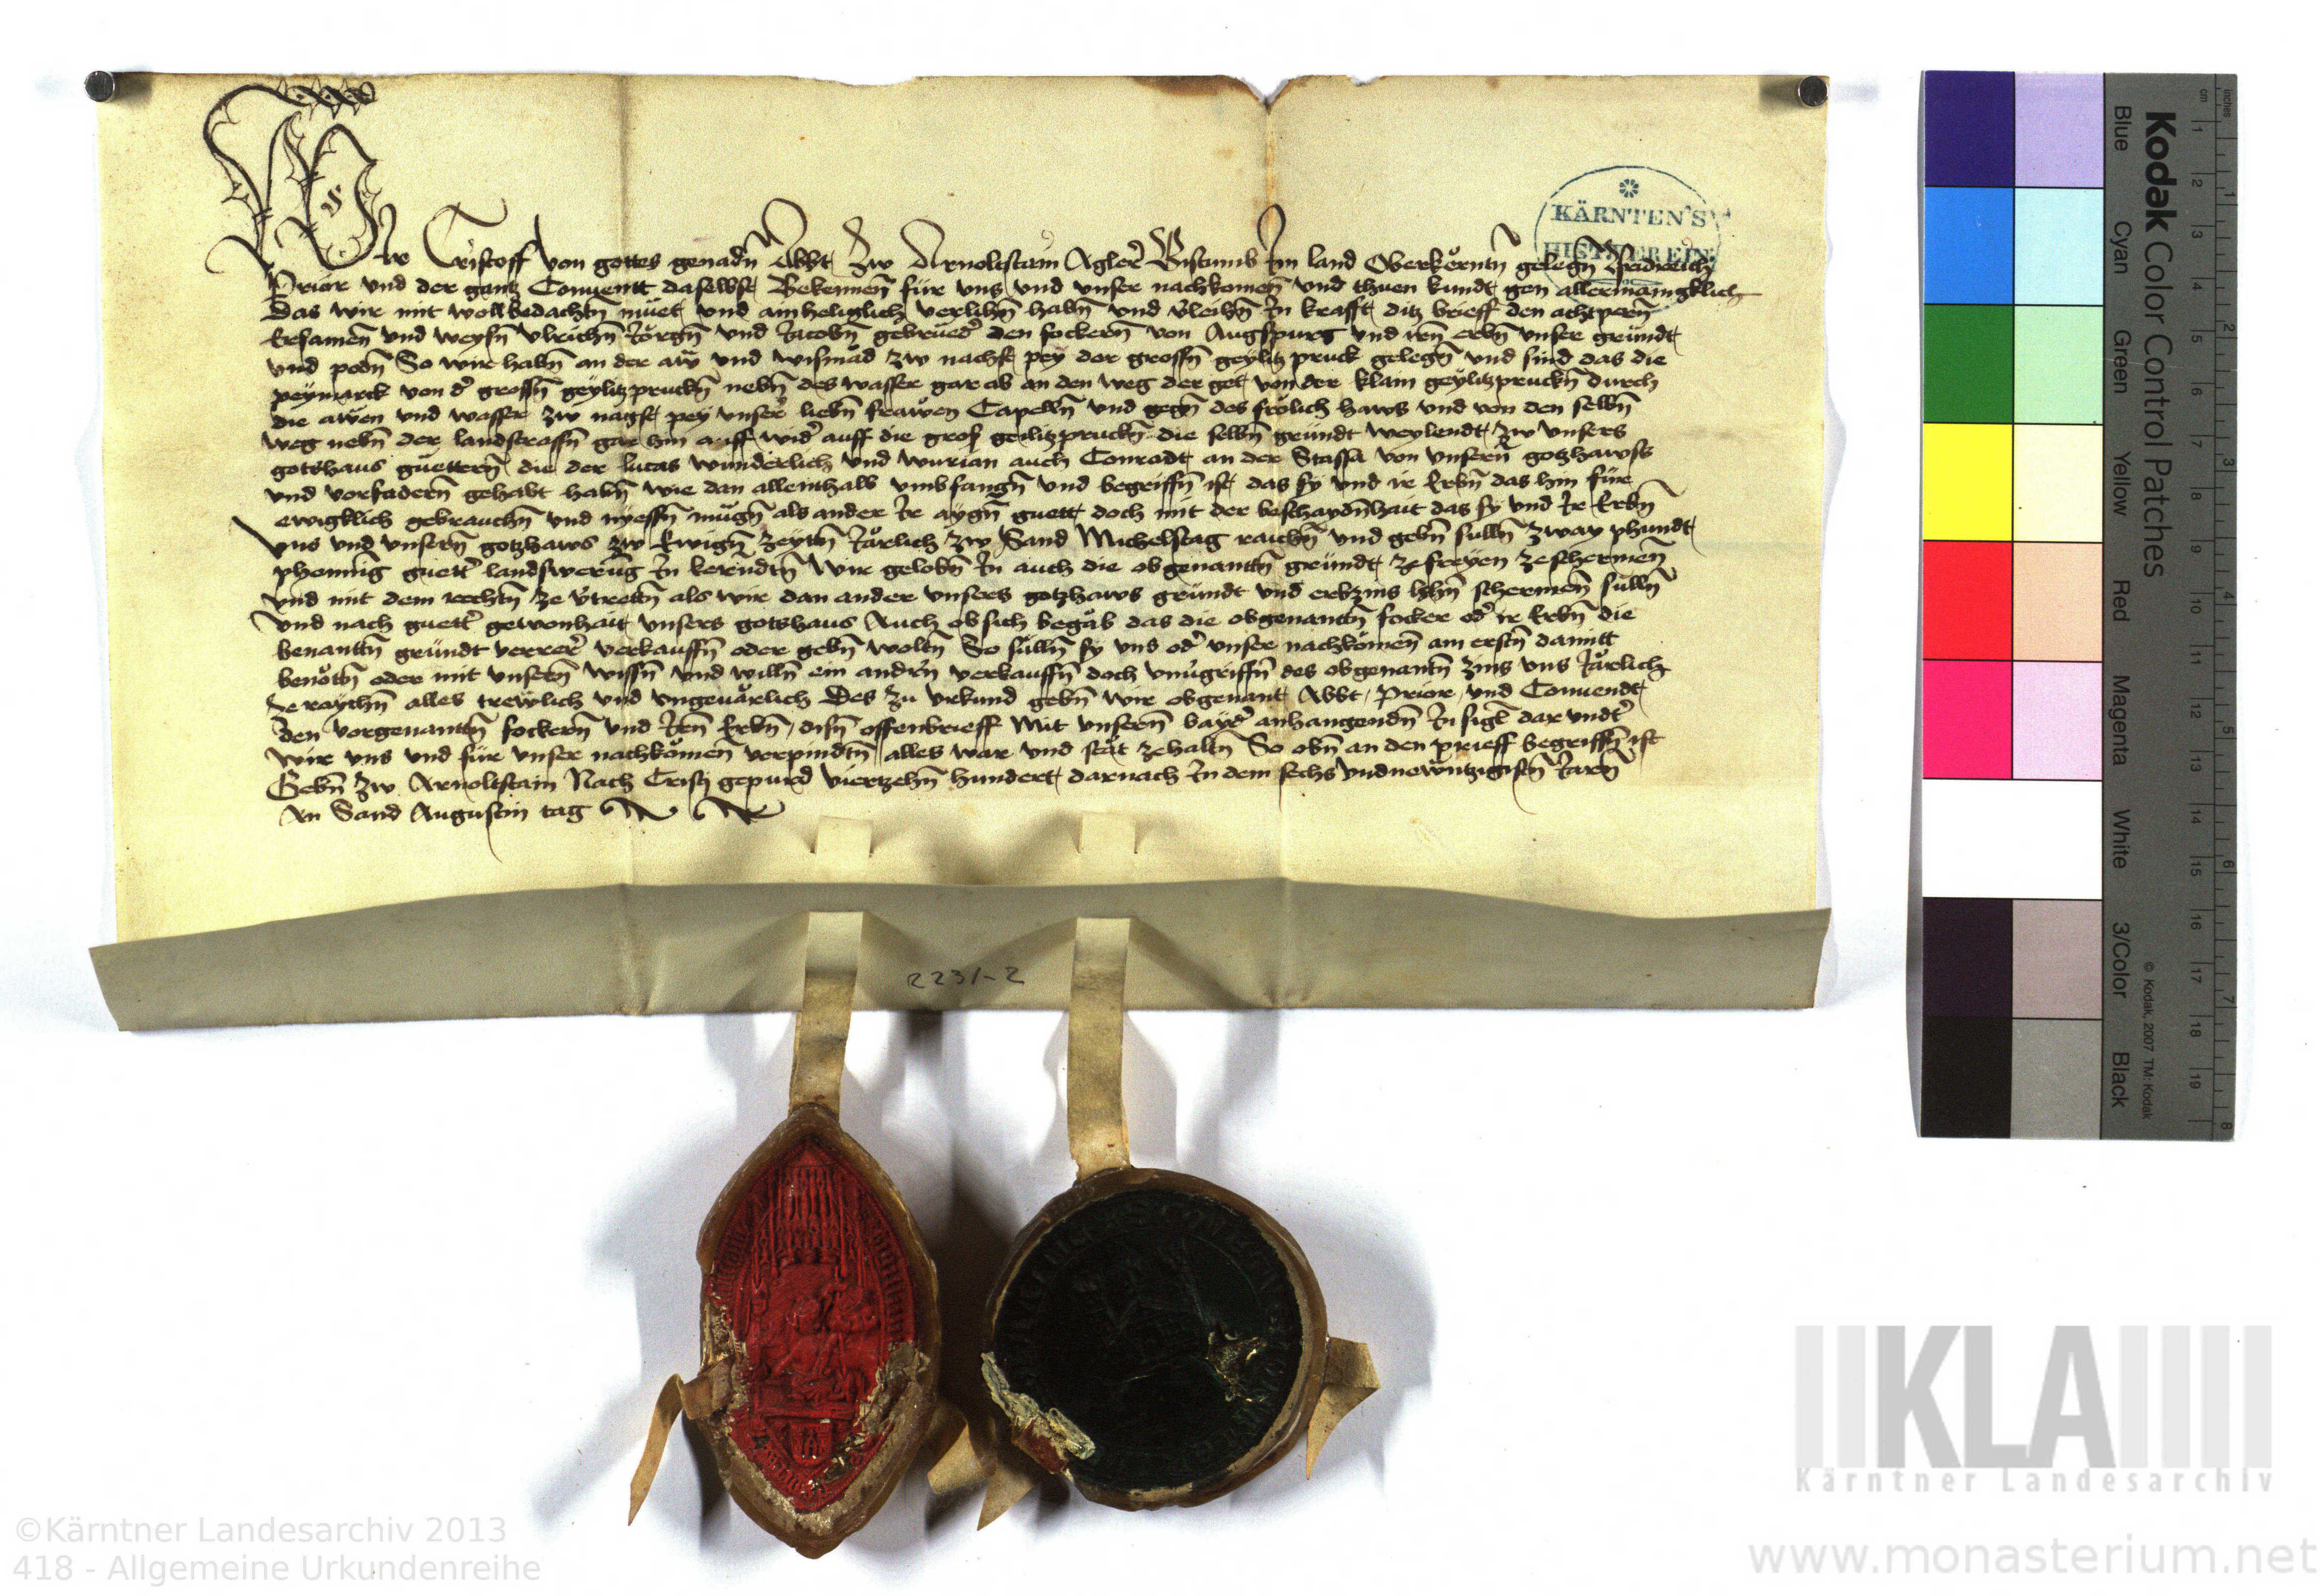 Wir Cristoff von gottes genadn̄ Abbt zw Arnoltstain Agler̄ Bistumb Im land Oberkerntn̄ gelegn̄ Fridreich
Prior vnd der gantz Conuentt daselbst Bekennen̄ für vns vnd vnser nachkomen̄ vnd thuen kundt gen allermänigklich
Das wir mit wollbedachtn̄ müet vnd ainheliglich verlihn̄ habn̄ vnd v̄leihn̄ In krafft ditz brieff den achtpern̄
Ersamen̄ vnd weysn̄ Vlrichn̄ Jörgn̄ vnd Jacobn̄ gebrued̄ den fockern̄ von Augspurg vnd irn̄ erbn̄ vnser gründt
vnd podn̄ So wir habn̄ an der aw vnd wismad zw nachst pey der grossn̄ geylitz pruck gelegn̄ vnd sind das die
peymarck von d̄ grossn̄ geylitzpruckn̄ nebn̄ des wasser gar ab an den weg der get von der klain geylitzpruckn̄ durch
die awen vnd wasser zw nagst pey vnser̄ liebn̄ frawen Capelln̄ vnd gegn̄ des frölich haws vnd von den selbn̄
weg nebn̄ der landstrassn̄ gar hin auff wid̄ auff die gross geilitzpruckn̄ die selbn̄ gründt weylendt zw vnsers
gotshaus guettern̄ die der lucas wunderlich vnd wurian auch Conradt an der Stassa von vnsern̄ gotzhawss
vnd vorfadern̄ gehabt habn̄ wie dan allenthalb vmbfangn̄ vnd begriffn̄ ist das sy vnd ir Erbn̄ das hin für
ewigklich gebrauchn̄ vnd nyessn̄ mügn̄ als ander Ir aygn̄ guett doch mit der beschaydn̄hait das sy vnd Ir Erbn̄
vns vnd vnsern̄ gotzhaws zw Ewign̄ zeyttn̄ Järlich zw Sand Michelstag raichn̄ vnd gebn̄ sulln̄ zway phundt
phennig guett̄ landswerūg In kerndtn̄ Wir gelobn̄ In auch die obgenantn̄ gründt ze freyen ze schermen̄
vnd mit dem rechtn̄ ze v̄trettn̄ als wir dan ander vnsers gotzhaws gründt vnd erbzins lehn̄ schermen̄ sulln̄
vnd nach guett̄ gewonhait vnsers gotshaus Auch ob sich begäb das die obgenantn̄ focker od̄ ir Erbn̄ die
benantn̄ gründt verrer̄ verkauffn̄ oder gebn̄ woltn̄ So sülln̄ sy vns od̄ vnser nachkömen̄ am erstn̄ damitt
benöttn̄ oder mit vnsern̄ wissn̄ vnd willn̄ ein andr̄n verkauffn̄ doch vnūgriffn̄ des obgenantn̄ zins vns Järlich
ze raychn̄ alles trewlich vnd vngeuärlich Des zu vrkund gebn̄ wir obgenant Abbt, Prior, vnd Conuendt
den vorgenantn̄ fockern̄ vnd Irn̄ Erbn̄, disn̄ offenbrieff Mit vnsern̄ bayd̄ anhangendn̄ Insigl̄ dar vndt̄
wir vns vnd für vnser nachkömen̄ verpindtn̄ alles war vnd stät zehaltn̄ So obn̄ an den prieff begriffn̄ ist
Gebn̄ zw Arnoltstain Nach Cristj gepurd viertzehn̄ hundert darnach In dem sechs vndnewntzigistn̄ Jarn̄
An Sand Augustin tag
KÄRNTEN'S
HIST. VEREIN
2231-2
Kodak Color Control Patches
Blue Cyan Green Yellow Red Magenta White 3/Color Black
© Kodak, 2007 TM: Kodak
cm 1 2 3 4 5 6 7 8 9 10 11 12 13 14 15 16 17 18 19
inches 1 2 3 4 5 6 7 8
KLA
Kärntner Landesarchiv
©Kärntner Landesarchiv 2013
418 - Allgemeine Urkundenreihe
www.monasterium.net